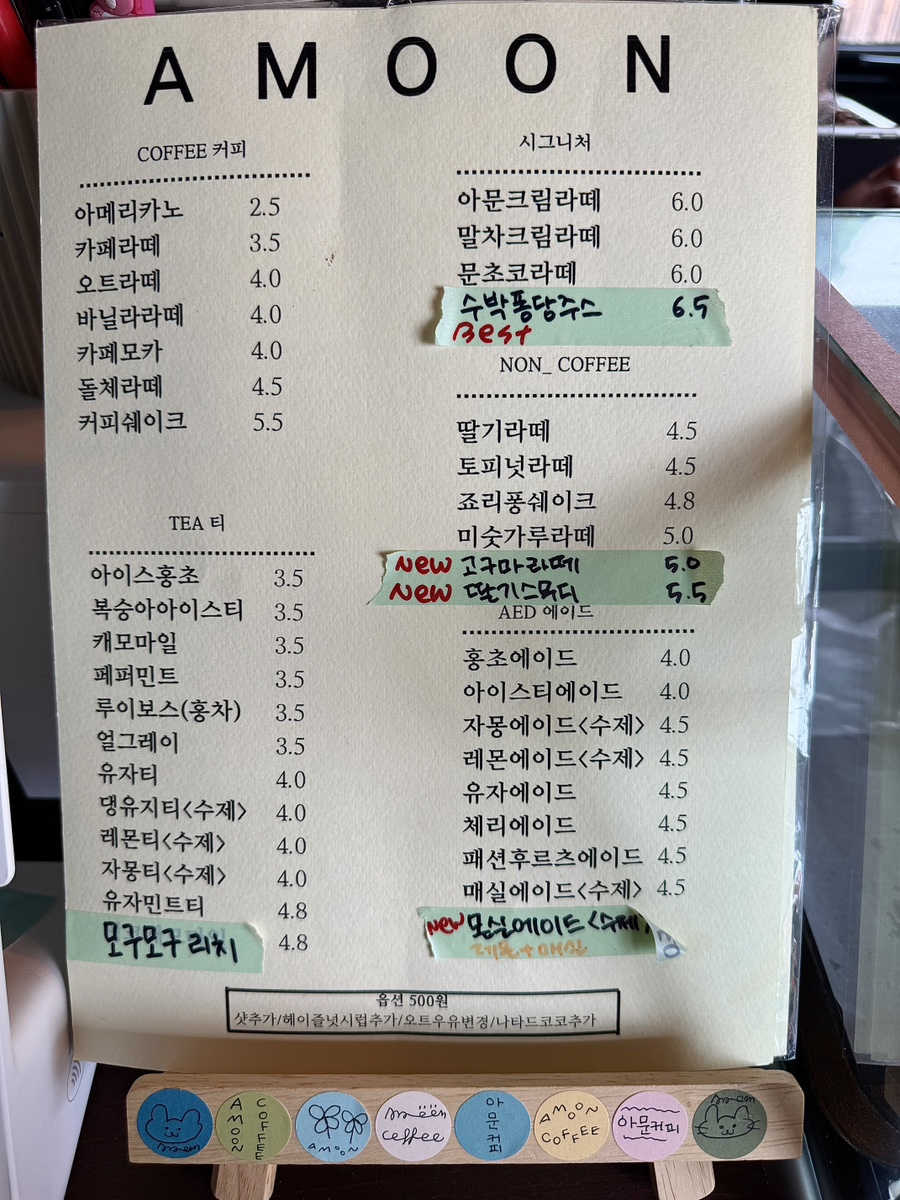 AMOON
COFFEE 커피
아메리카노 2.5
카페라떼 3.5
오트라떼 4.0
바닐라라떼 4.0
카페모카 4.0
돌체라떼 4.5
커피쉐이크 5.5
TEA 티
아이스홍초 3.5
복숭아아이스티 3.5
캐모마일 3.5
페퍼민트 3.5
루이보스(홍차) 3.5
얼그레이 3.5
유자티 4.0
댕유지티<수제> 4.0
레몬티<수제> 4.0
자몽티<수제> 4.0
유자민트티 4.8
모구모구 리치 4.8
시그니처
아문크림라떼 6.0
말차크림라떼 6.0
문초코라떼 6.0
수박퐁당주스 6.5
Best
NON_ COFFEE
딸기라떼 4.5
토피넛라떼 4.5
죠리퐁쉐이크 4.8
미숫가루라떼 5.0
New 고구마라떼 5.0
New 딸기스무디 5.5
AED 에이드
홍초에이드 4.0
아이스티에이드 4.0
자몽에이드<수제> 4.5
레몬에이드<수제> 4.5
유자에이드 4.5
체리에이드 4.5
패션후르츠에이드 4.5
매실에이드<수제> 4.5
New 몽실에이드<수제>
레몬+매실
옵션 500원
샷추가/헤이즐넛시럽추가/오트우유변경/나타드코코추가
moon
AMOON COFFEE
AMOON
moon coffee
아문커피
AMOON COFFEE
아문커피
moon